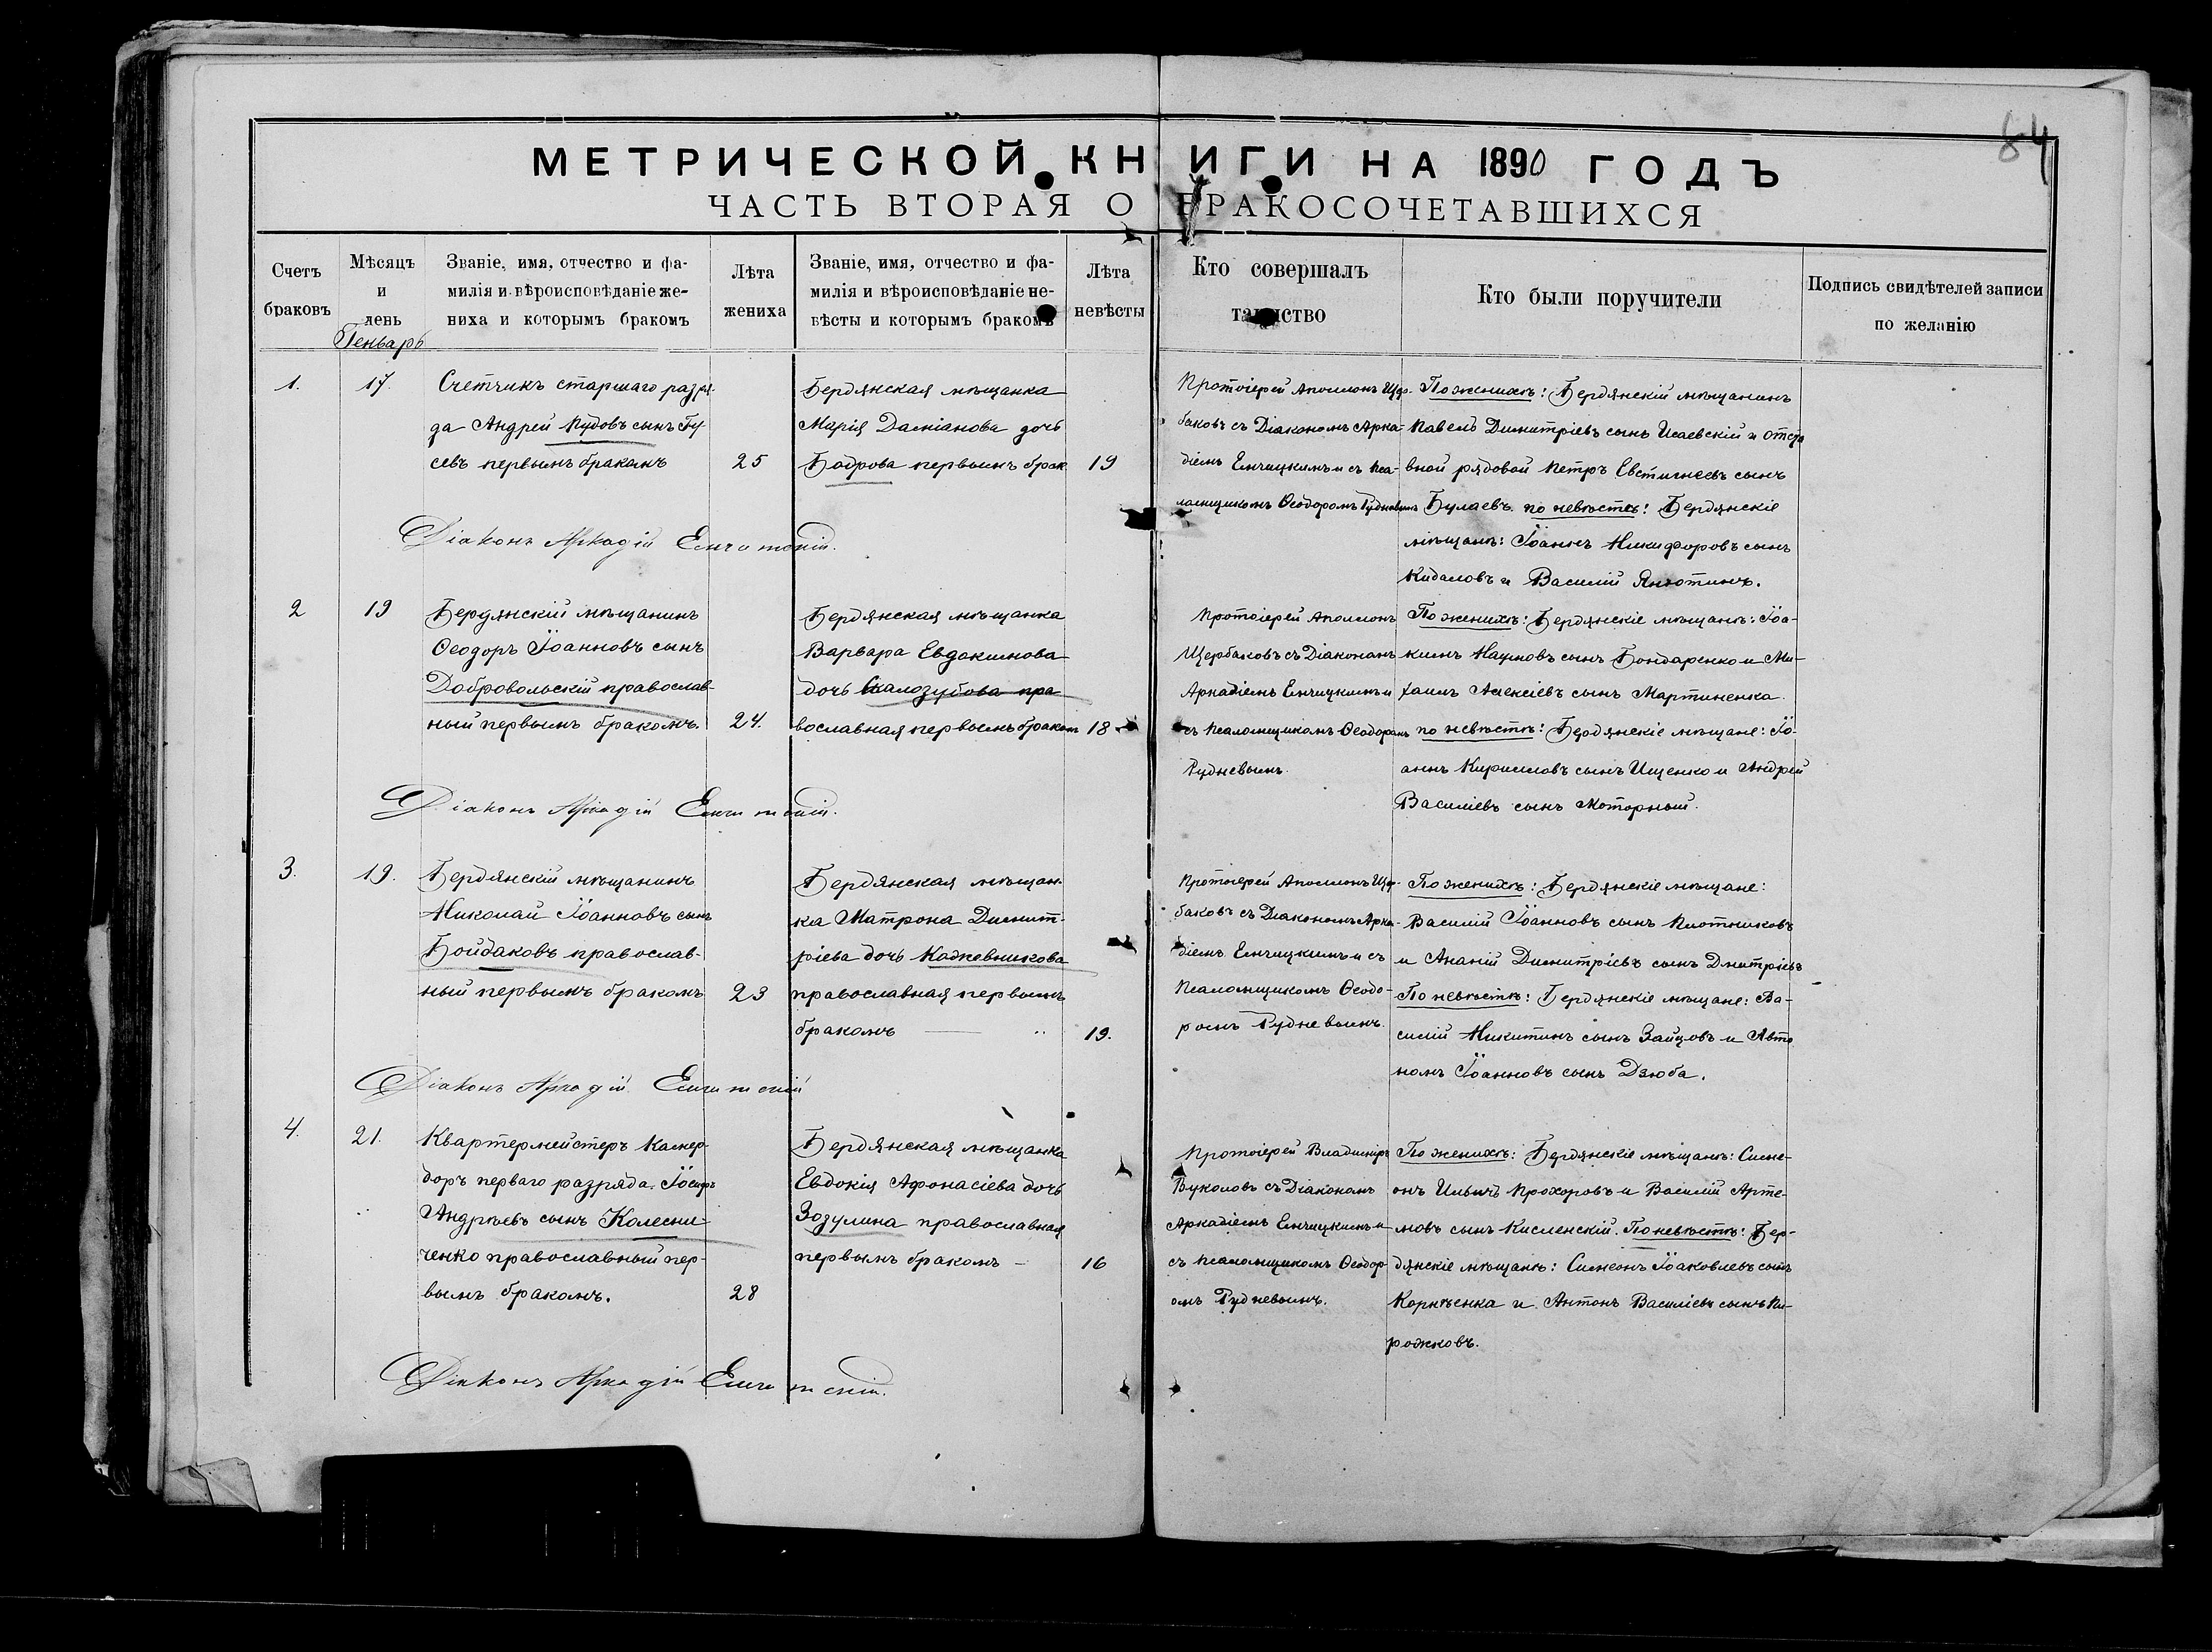 84
МЕТРИЧЕСКОЙ КНИГИ НА 1890 ГОДЪ
ЧАСТЬ ВТОРАЯ О БРАКОСОЧЕТАВШИХСЯ
Счетъ
браковъ
Мѣсяцъ
и
день
Генварь
Званіе, имя, отчество и фа-
милія и вѣроисповѣданіе же-
ниха и которымъ бракомъ
Лѣта
жениха
Званіе, имя, отчество и фа-
милія и вѣроисповѣданіе не-
вѣсты и которымъ бракомъ
Лѣта
невѣсты
Кто совершалъ
таинство
Кто были поручители
Подпись свидѣтелей записи
по желанію
1.
17.
Счетчикъ старшаго разря-
да Андрей Пудовъ сынъ Гу-
севъ первымъ бракомъ
25
Бердянская мѣщанка
Марія Даміанова дочь
Бодрова первымъ брак
19
Протоіерей Аполлонъ Щер-
баковъ съ Діакономъ Арка-
діемъ Енчицкимъ и съ Пса-
ломщикомъ Ѳеодоромъ Рудневымъ
По женихѣ: Бердянскій мѣщанинъ
Павелъ Димитріевъ сынъ Исаевскій и отста
вной рядовой Петръ Евстигнеевъ сынъ
Булаевъ. по невѣстѣ: Бердянскіе
мѣщанѣ: Іоаннъ Никифоровъ сынъ
Кидаловъ и Василій Янютинъ.
Діаконъ Аркадій Енчитскій.
2
19
Бердянскій мѣщанинъ
Ѳеодоръ Іоанновъ сынъ
Добровольскій православ-
ный первымъ бракомъ.
24.
Бердянская мѣщанка
Варвара Евдокимова
дочь Скалозубова пра
вославная первымъ бракомъ
18
Протоіерей Аполлонъ
Щербаковъ съ Діаконамъ
Аркадіемъ Енчицкимъ и
съ Псаломщикомъ Ѳеодоромъ
Рудневымъ.
По женихѣ: Бердянскіе мѣщанѣ: Іоа-
кимъ Наумовъ сынъ Бондаренко и Ми-
хаилъ Алексіевъ сынъ Мартиненка.
по невѣстѣ: Бердянскіе мѣщане: Іо-
аннъ Кирилловъ сынъ Ищенко и Андрей
Василіевъ сынъ Моторный.
Діаконъ Аркадій Енчитскій.
3.
19.
Бердянскій мѣщанинъ
Николай Іоанновъ сынъ
Бойдаковъ православ-
ный первымъ бракомъ
23
Бердянская мѣщан-
ка Матрона Димит-
ріева дочь Кожевникова
православная первымъ
бракомъ
19.
Протоіерей Аполлонъ Щер-
баковъ съ Діакономъ Арка-
діемъ Енчицкимъ и съ
Псаломщикомъ Ѳеодо-
ромъ Рудневымъ.
По женихѣ: Бердянскіе мѣщане:
Василій Іоанновъ сынъ Плотниковъ
и Ананій Димитріевъ сынъ Дмитріевъ
По невѣстѣ: Бердянскіе мѣщане: Ва-
силій Никитинъ сынъ Зайцовъ и Авто
номъ Іоанновъ сынъ Дзюба.
Діаконъ Аркадій Енчитскій
4.
21.
Квартермейстеръ Комен-
доръ перваго разряда Іосифъ
Андрѣевъ сынъ Колесни-
ченко православный пер-
вымъ бракомъ.
28
Бердянская мѣщанка
Евдокія Афонасіева дочь
Зозулина православная
первымъ бракомъ –
16
Протоіерей Владиміръ
Вуколовъ съ Діакономъ
Аркадіемъ Енчицкимъ и
съ Псаломщикомъ Ѳеодор-
омъ Рудневымъ.
По женихѣ: Бердянскіе мѣщанѣ: Симе-
онъ Ильичъ Прохоровъ и Василій Арте-
мовъ сынъ Кисленскій. По невѣстѣ: Бер-
дянскіе мѣщанѣ: Симеонъ Іоаковлевъ сынъ
Корнѣенка и Антонъ Василіевъ сынъ Пи-
рожковъ.
Діаконъ Аркадій Енчитскій.